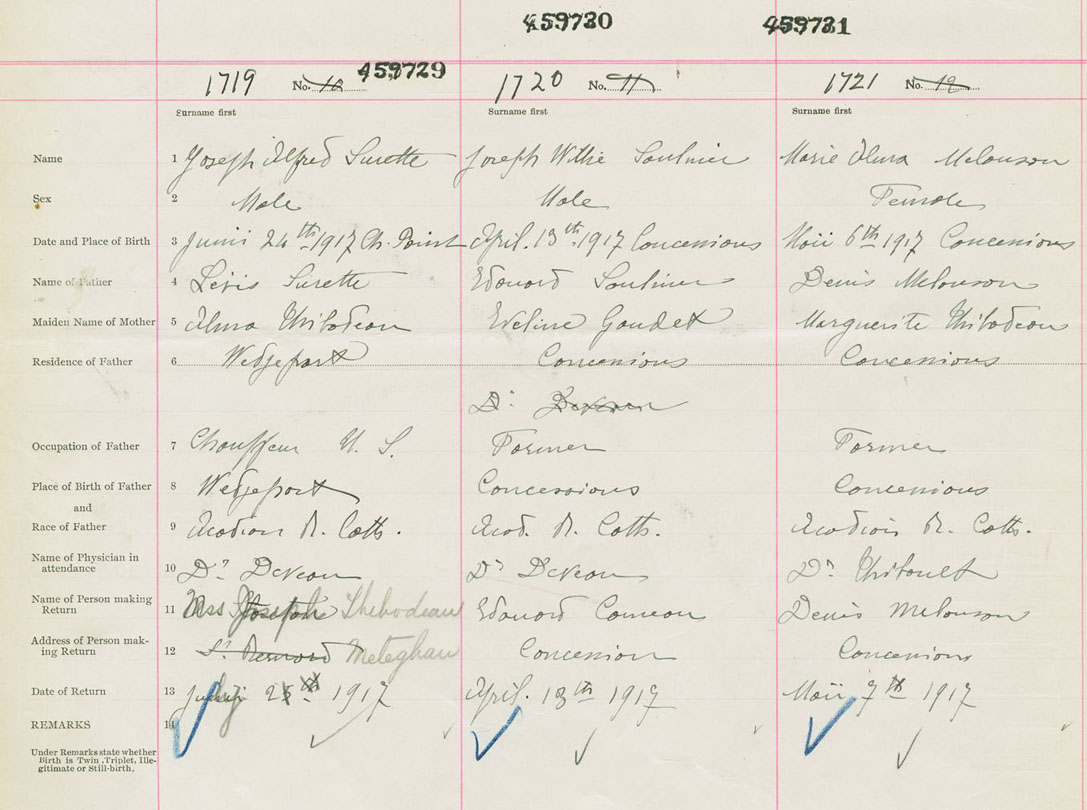 459730 459731
1719 No. 10 459729 1720 No. 11 1721 No. 12
Surname first Surname first Surname first
Name 1 Joseph Alfred Surette Joseph Willie Saulnier Marie Alma Melonson
Sex 2 Male Male Female
Date and Place of Birth 3 Juin 24th 1917 Ch. Point April. 13th 1917 Concessions Maii 6th 1917 Concessions
Name of Father 4 Lévis Surette Edouard Saulnier Denis Melonson
Maiden Name of Mother 5 Alma Thibodeau Eveline Gaudet Marguerite Thibodeau
Residence of Father 6 Wedgeport Concessions Concessions
Dr
Occupation of Father 7 Chauffeur U. S. Farmer Farmer
Place of Birth of Father 8 Wedgeport Concessions Concessions
and
Race of Father 9 Acadian R. Cath. Acad. R. Cath. Acadian R. Cath.
Name of Physician in
attendance 10 Dr DeVeau Dr DeVeau Dr Thibault
Name of Person making
Return 11 Joseph Thibodeau Edouard Comeau Denis Melonson
Address of Person mak-
ing Return 12 St. Bernard Meteghan Concession Concessions
Date of Return 13 July 1917 April. 13th 1917 Maii 7th 1917
REMARKS 14
Under Remarks state whether
Birth is Twin, Triplet, Ille-
gitimate or Still-birth.